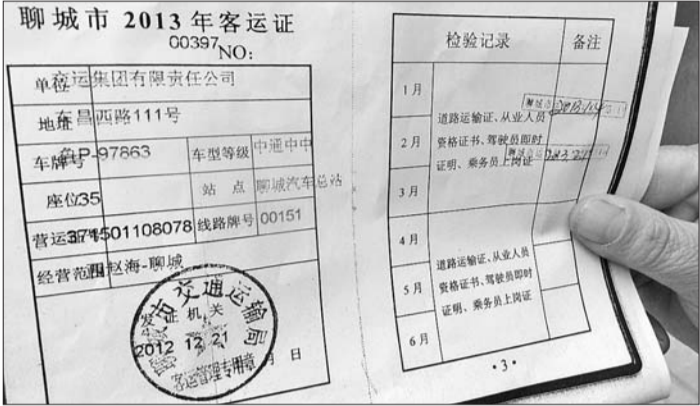 聊城市 2013 年客运证
00397
NO:
单位 交运集团有限责任公司
地址 东昌西路111号
车牌号 鲁P-97863 车型等级 中通中中
座位 35 站 点 聊城汽车总站
营运证号 371501108078 线路牌号 00151
经营范围 赵海-聊城
交通运输局
发证机关
2012 12 21
客运管理专用章
月 日
检验记录 备注
1月
道路运输证、从业人员
2月
资格证书、驾驶员即时
证明、乘务员上岗证
3月
4月
道路运输证、从业人员
5月
资格证书、驾驶员即时
证明、乘务员上岗证
6月
·3·